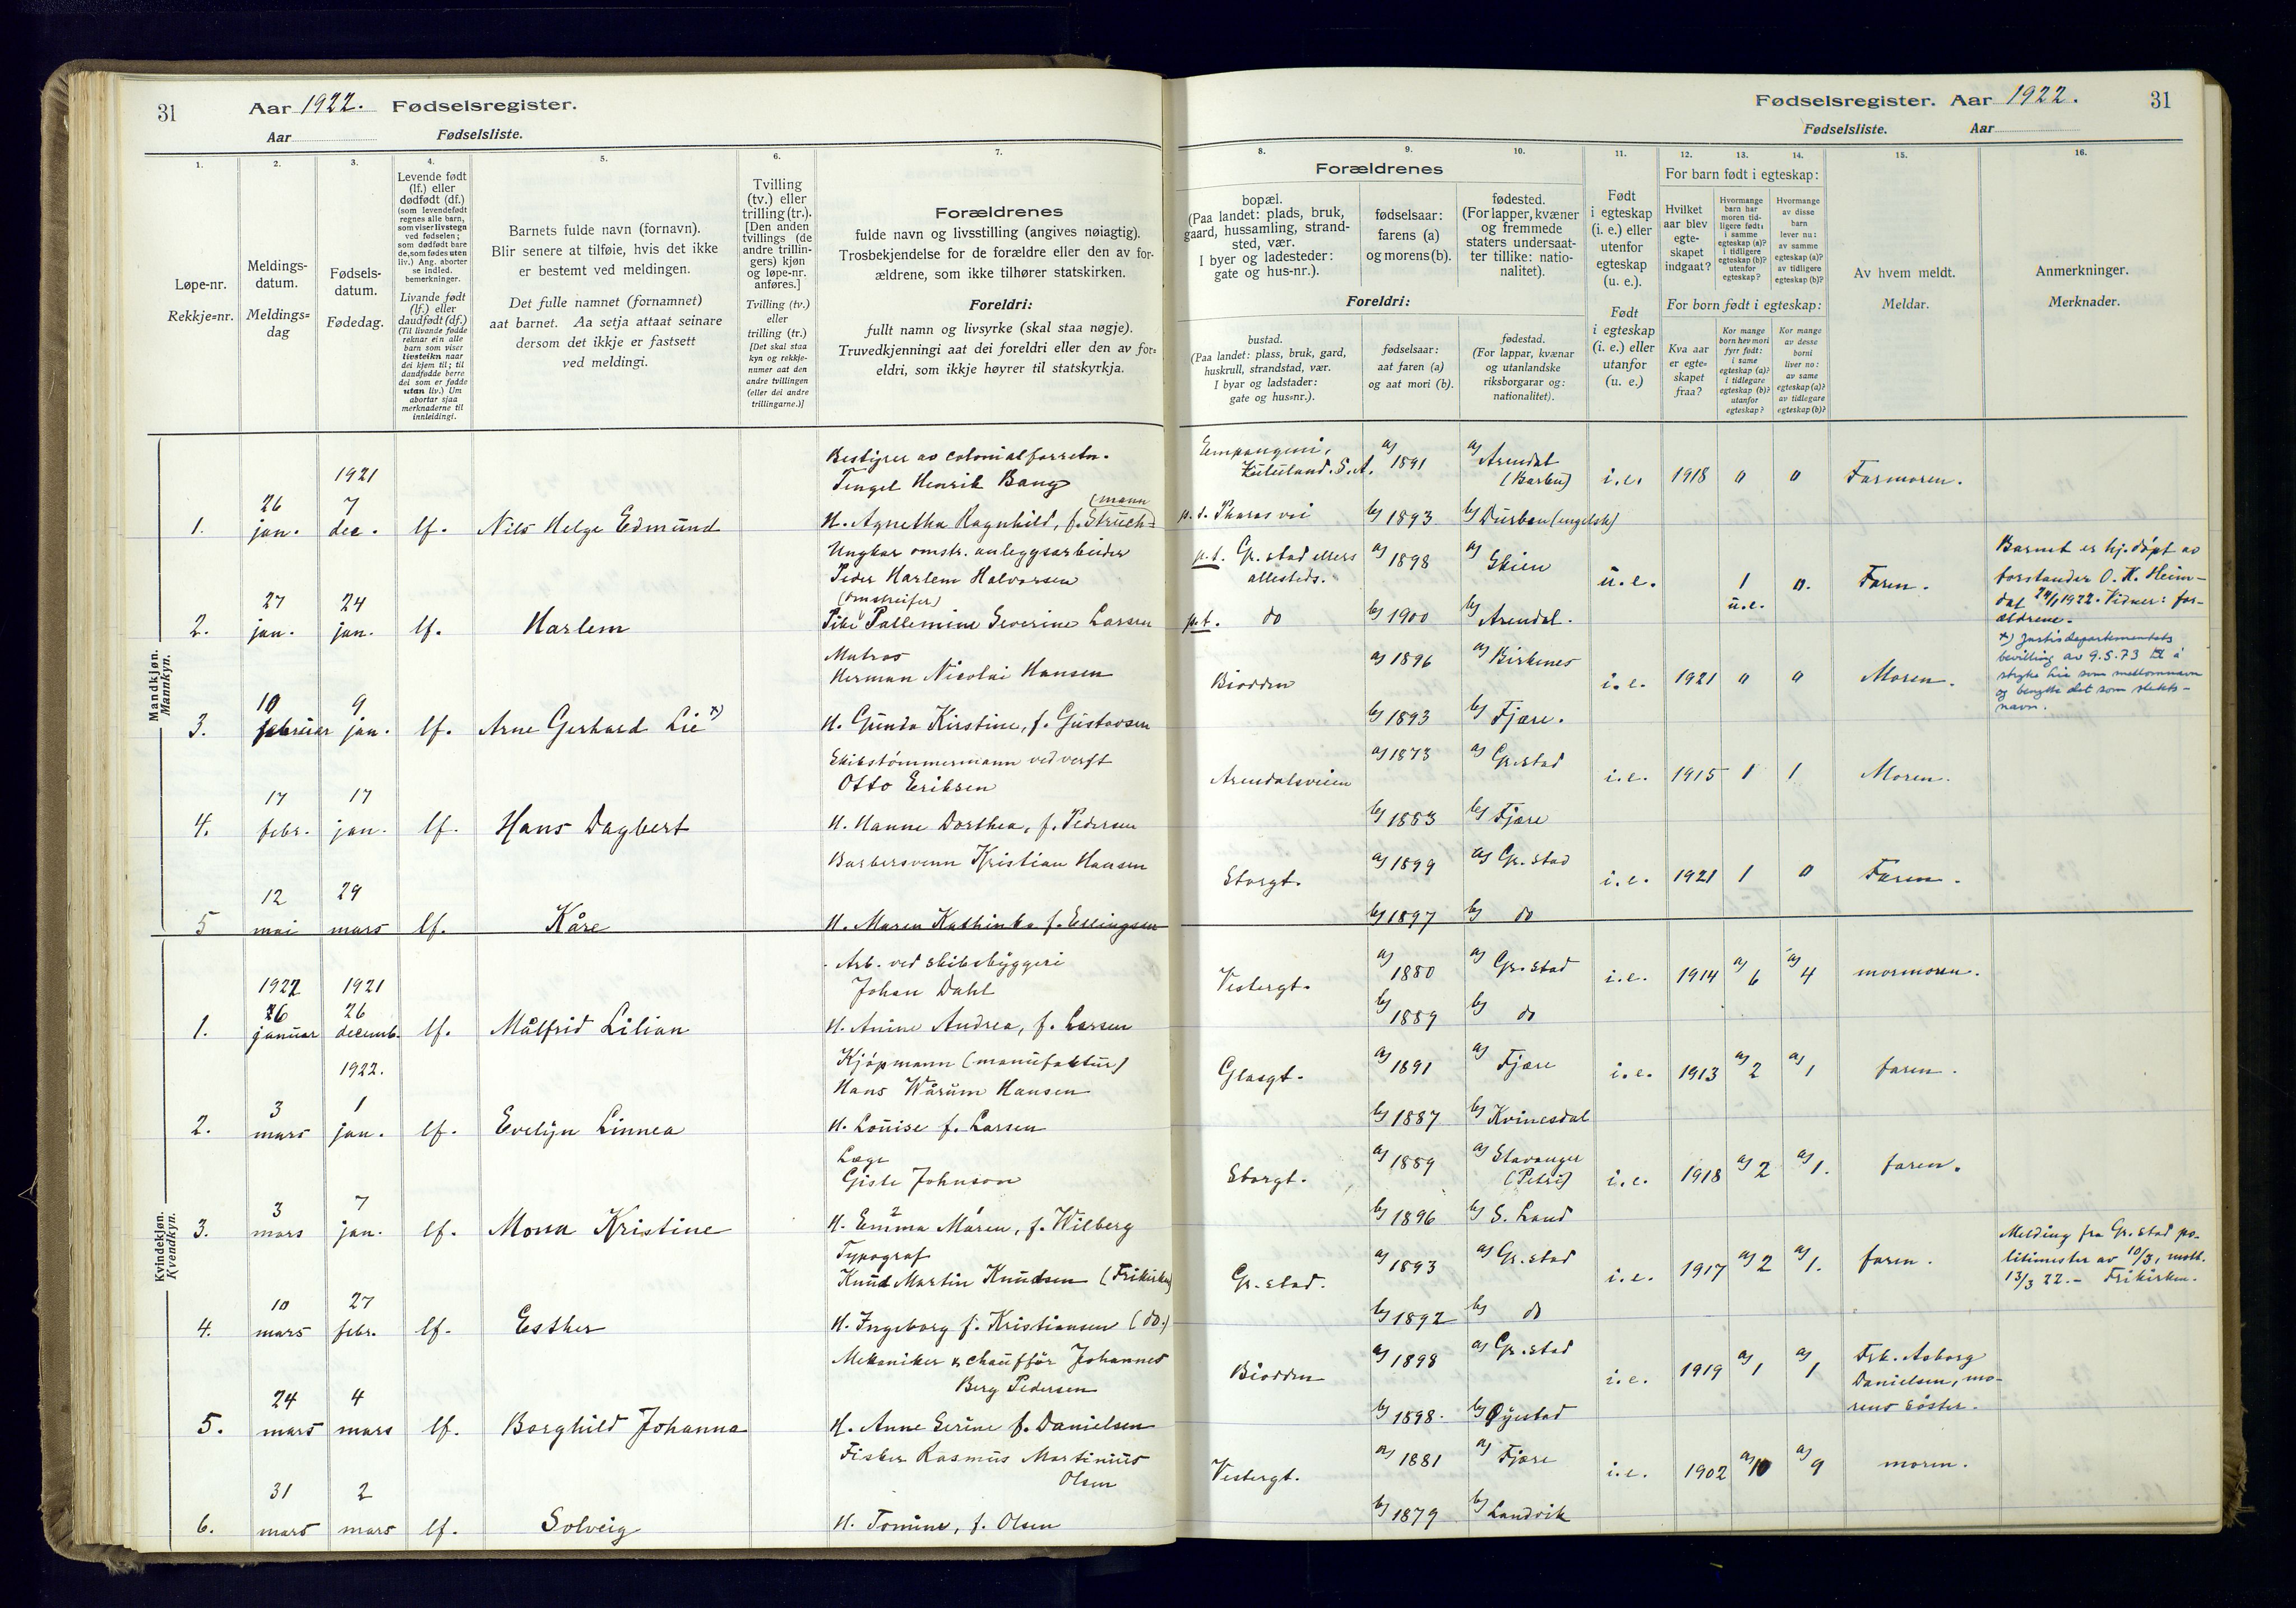 31 Aar 1922. Fødselsregister.
Aar Fødselsliste.
Fødselsregister. Aar 1922. 31
Fødselsliste. Aar
1.
Løpe-nr.
Rekkje=nr.
2.
Meldings-
datum.
Meldings=
dag
3.
Fødsels-
datum.
Fødedag.
4.
Levende født
(lf.) eller
dødfødt (df.)
(som levendefødt
regnes alle barn,
som viser livstegn
ved fødselen;
som dødfødt bare
de, som fødes uten
liv.) Ang. aborter
se indled.
bemerkninger.
Livande født
(lf.) eller
daudfødt (df.)
(Til livande fødde
reknar ein alle
barn som viser
livsteikn naar
dei kjem til; til
daudfødde berre
dei som er fødde
utan liv.) Um
abortar sjaa
merknaderne til
innleidingi.
5.
Barnets fulde navn (fornavn).
Blir senere at tilføie, hvis det ikke
er bestemt ved meldingen.
Det fulle namnet (fornamnet)
aat barnet. Aa setja attaat seinare
dersom det ikkje er fastsett
ved meldingi.
6.
Tvilling
(tv.) eller
trilling (tr.).
[Den anden
tvillings (de
andre trillin-
gers) kjøn
og løpe-nr.
anføres.]
Tvilling (tv.)
eller
trilling (tr.)
[Det skal staa
kyn og rekkje-
numer aat den
andre tvillingen
(eller dei andre
trillingarne.)]
7.
Forældrenes
fulde navn og livsstilling (angives nøiagtig).
Trosbekjendelse for de forældre eller den av for-
ældrene, som ikke tilhører statskirken.
Foreldri:
fullt namn og livsyrke (skal staa nøgje).
Truvedkjenningi aat dei foreldri eller den av for=
eldri, som ikkje høyrer til statskyrkja.
Forældrenes
8.
bopæl.
(Paa landet: plads, bruk,
gaard, hussamling, strand-
sted, vær.
I byer og ladesteder:
gate og hus-nr.).
9.
fødselsaar:
farens (a)
og morens (b).
10.
fødested.
(For lapper, kvæner
og fremmede
staters undersaat-
ter tillike: natio-
nalitet).
Foreldri:
bustad.
(Paa landet: plass, bruk, gard,
huskrull, strandstad, vær.
I byar og ladstader:
gate og hus=nr.).
fødselsaar:
aat faren (a)
og aat mori (b).
fødestad.
(For lappar, kvænar
og utanlandske
riksborgarar og:
nationalitet).
11.
Født
i egteskap
(i. e.) eller
utenfor
egteskap
(u. e.).
Født
i egteskap
(i. e.) eller
utanfor
(u. e.)
For barn født i egteskap:
12.
Hvilket
aar blev
egte-
skapet
indgaat?
13.
Hvormange
barn har
moren tid-
ligere født:
i samme
egteskap (a)?
i tidligere
egteskap (b)?
utenfor
egteskap?
14.
Hvormange
av disse
barn
lever nu:
av samme
egteskap (a)?
av tidligere
egteskap (b)?
For born født i egteskap:
Kva aar
er egte-
skapet
fraa?
Kor mange
born hev mori
fyrr født:
i same
egteskap (a)?
i tidlegare
egteskap (b)?
utanfor
egteskap?
Kor mange
av desse
borni
liver no:
av same
egteskap (a)?
av tidlegare
egteskap (b)?
15.
Av hvem meldt.
Meldar.
16.
Anmerkninger.
Merknader.
Mandkjøn.
Mannkyn.
1. 26 jan. 1921 7 dec. lf. Nils Helge Edmund
Bestyrer av colonialforretn.
Tengel Henrik Bang
H. Agnetha Ragnhild, f. Struch=
(mann
Empangeni,
Zululand. S. A. a) 1891 a) Arendal
(Barbu) i. e. 1918 0 0 Farmoren.
p. t. Pharos vei b) 1893 b) Durban (engelsk)
2. 27 jan. 24 jan. lf. Harlem
Ungkar omstr. anleggsarbeider
Peder Harlem Halvorsen
(omstreifer)
Pike Pallemine Severine Larsen
p. t. Gr.stad ellers
allesteds. a) 1898 a) Skien u. e. 1 u. e. 0. Faren.
p. t. do b) 1900 b) Arendal.
Barnet er hj.døpt av
forstander O. K. Heim-
dal 24/1 1922. Vidner: for-
ældrene.
3. 10 februar 9 jan. lf. Arne Gerhard Lie x)
Matros
Herman Nicolai Hansen
H. Gunda Kirstine, f. Gustavsen
Biodden a) 1896 a) Birkenes i. e. 1921 0 0 Moren.
b) 1893 b) Fjære.
x) Justisdepartementets
bevilling av 9.5.73 til å
stryke Lie som mellomnavn
og benytte det som slekts-
navn.
4. 17 febr. 17 jan. lf. Hans Dagbert
Skibstømmermann ved verft
Otto Eriksen
H. Hanne Dorthea, f. Pedersen
Arendalsveien a) 1873 a) Gr.stad i. e. 1915 1 1 Moren.
b) 1883 b) Fjære
5 12 mai 29 mars lf. Kåre
Barbersvenn Kristian Hansen
H. Maren Kathinka f. Ellingsen
Storgt. a) 1899 a) Gr.stad i. e. 1921 1 0 Faren.
b) 1897 b) do
Kvindekjøn.
Kvendkyn.
1. 1922 26 januar 1921 26 decemb. lf. Målfrid Lilian
Arb. ved skibsbyggeri
Johan Dahl
H. Anine Andrea, f. Larsen
Vestergt. a) 1880 a) Gr.stad i. e. 1914 a) 6 a) 4 mormoren.
b) 1889 b) do
2. 3 mars 1922. 1 jan. lf. Evelyn Linnea
Kjøpmann (manufaktur)
Hans Wårum Hansen
H. Louise f. Larsen
Glasgt. a) 1891 a) Fjære i. e. 1913 a) 2 a) 1 faren.
b) 1887 b) Kvinesdal
3. 3 mars 7 jan. lf. Mona Kristine
Læge
Gisle Johnson
H. Emma Maren, f. Wilberg
Storgt. a) 1889 a) Stavanger
(Petri) i. e. 1918 a) 2 a) 1. faren.
b) 1896 b) S. Land
4. 10 mars 27 febr. lf. Esther
Typograf
Knud Martin Knudsen (Frikirken)
H. Ingeborg f. Kristiansen (do.)
Gr.stad. a) 1893 a) Gr.stad i. e. 1917 a) 2 a) 1. faren.
b) 1892 b) do
Melding fra Gr.stad po-
litimester av 10/3, mott.
13/3 22.- Frikirken.
5. 24 mars 4 mars lf. Borghild Johanna
Mekaniker & chauffør Johannes
Berg Pedersen
H. Anne Serine f. Danielsen
Biodden a) 1898 a) Gr.stad i. e. 1919 a) 1 a) 1
Frk. Aaborg
Danielsen, mo-
rens søster.
b) 1898. b) Øyestad
6. 31 mars 2 mars lf. Solveig
Fisker Rasmus Martinius
Olsen
H. Tomine, f. Olsen
Vestergt. a) 1881 a) Fjære i. e. 1902 a) 10 a) 9 moren.
b) 1879 b) Landvik